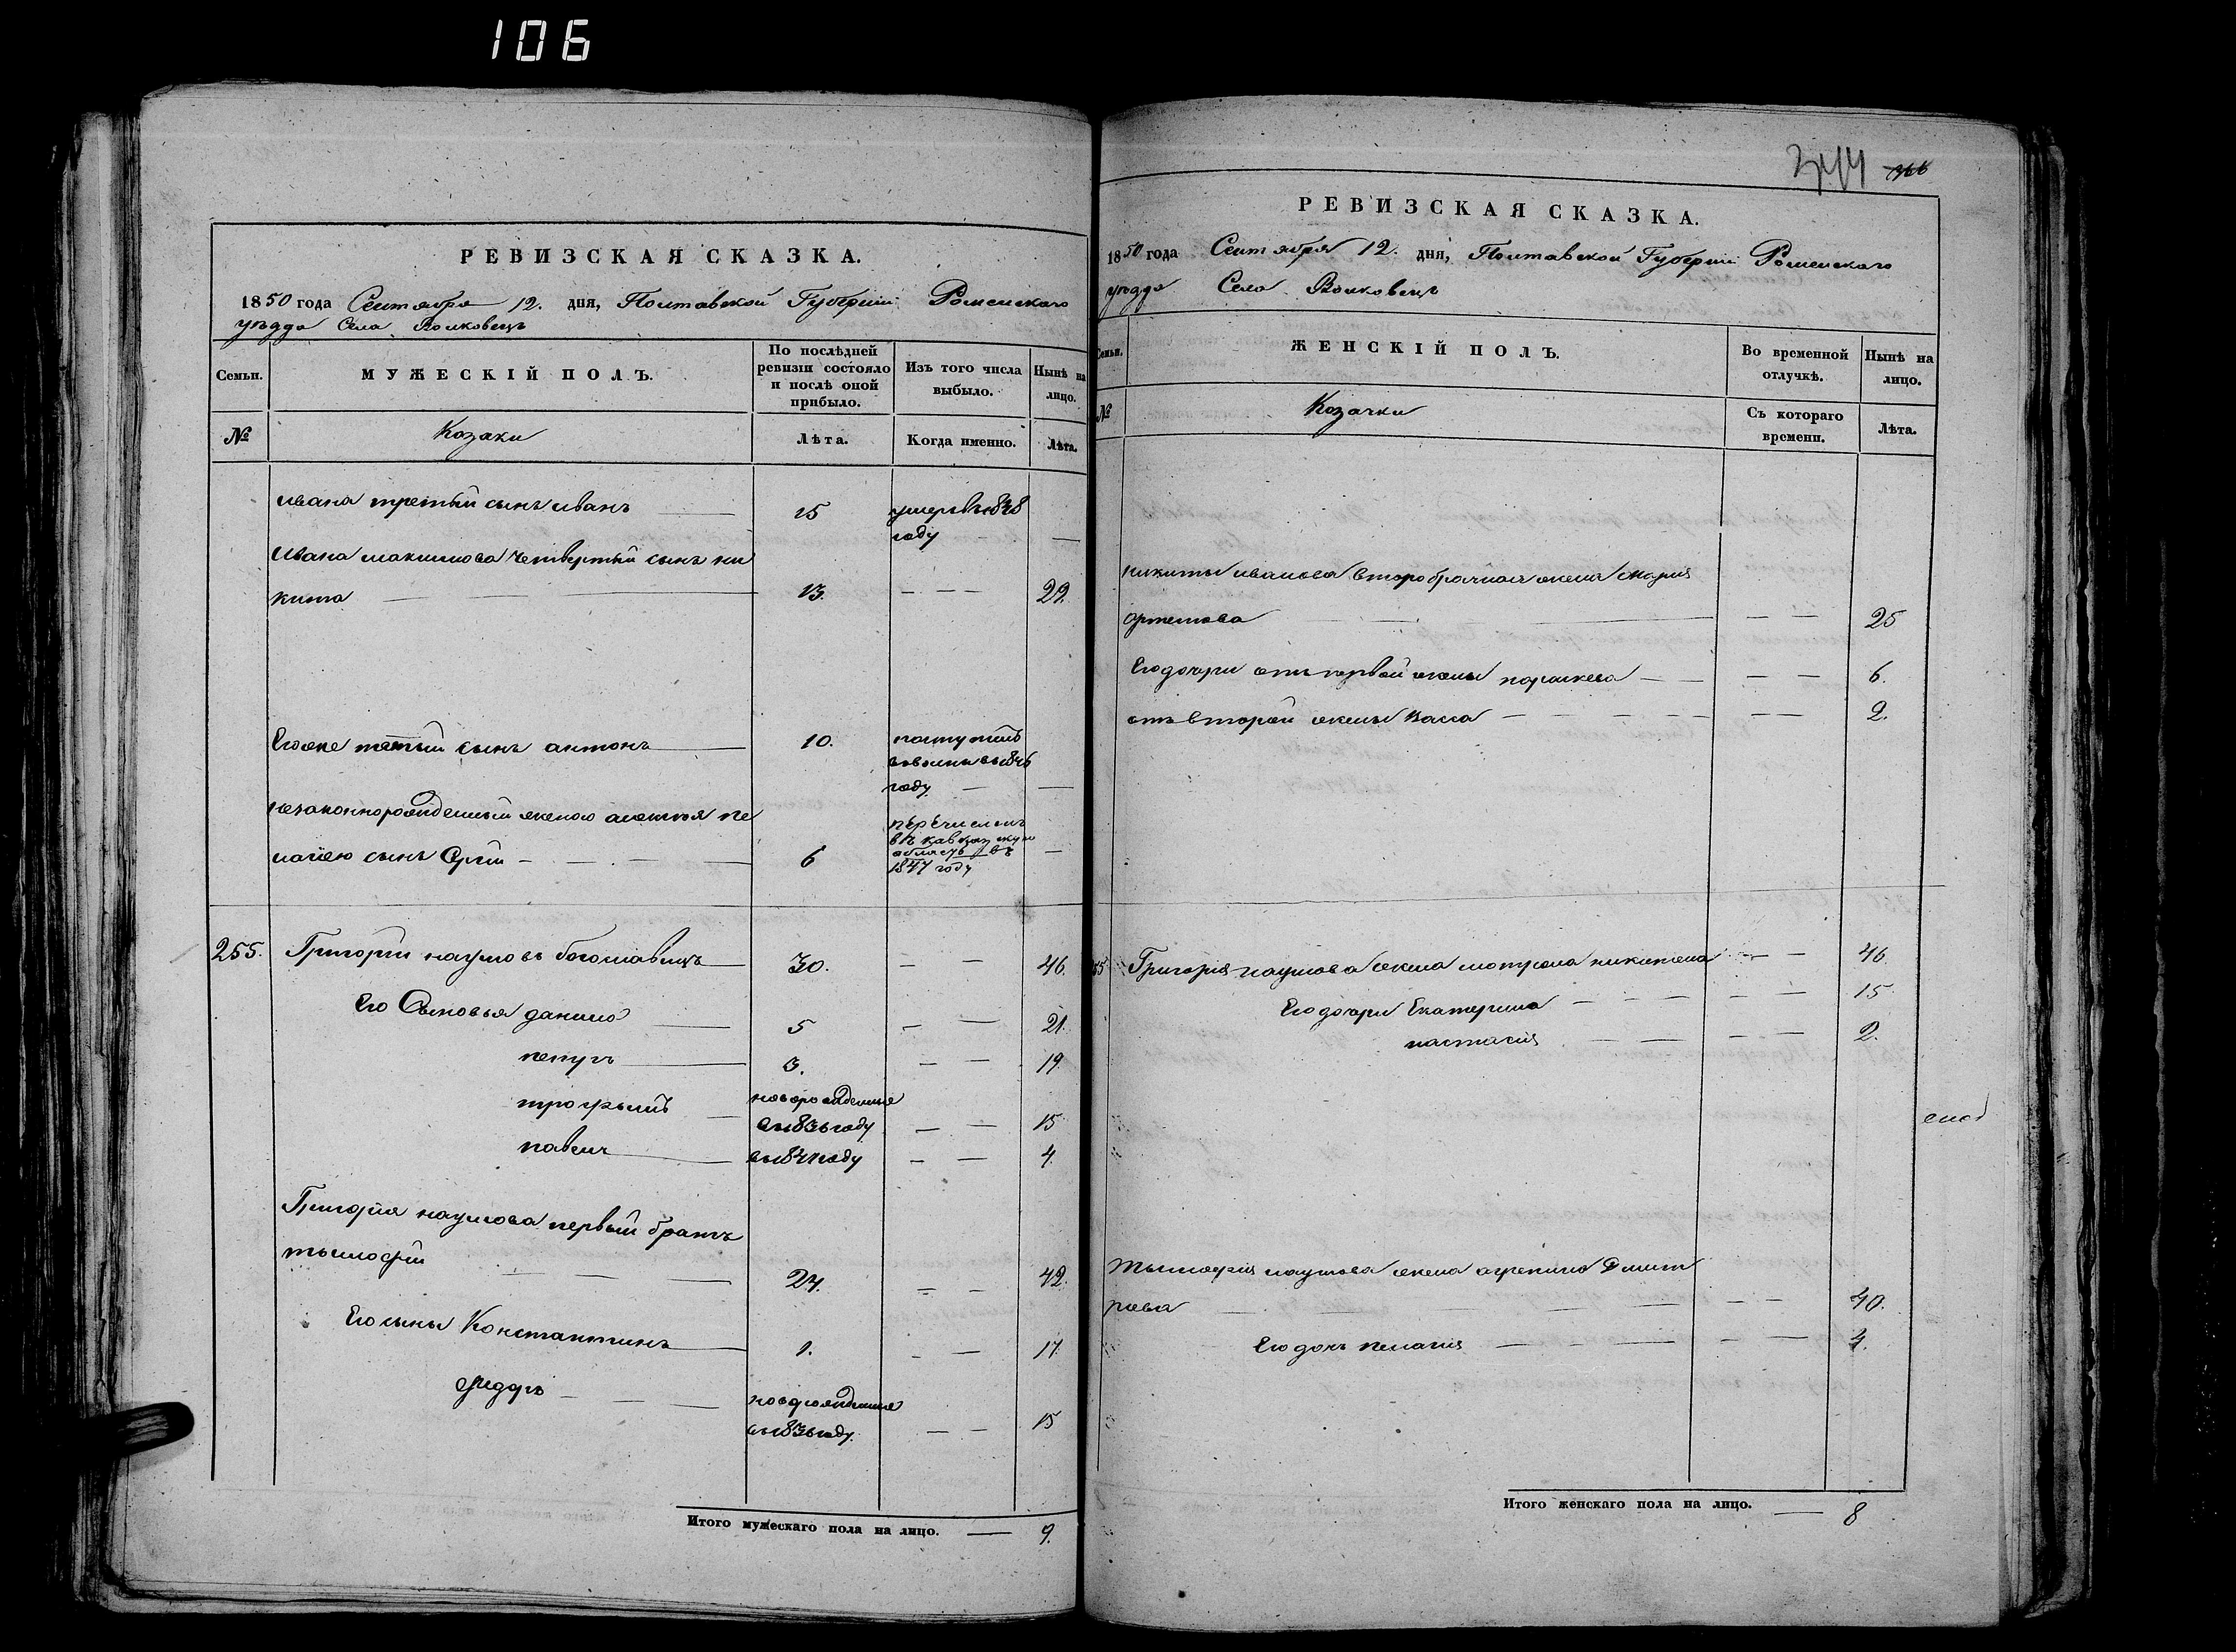 106
РЕВИЗСКАЯ СКАЗКА.
1850 года Сентября 12. дня, Полтавской Губернiи Роменскаго
уѣзда Села Волковецъ
Семьи.
МУЖЕСКІЙ ПОЛЪ.
По послѣдней ревизіи состояло и послѣ оной прибыло.
Изъ того числа выбыло.
Нынѣ на лицо.
№
Козаки
Лѣта.
Когда именно.
Лѣта.
ивана третый сынъ иванъ 15 умеръ въ 1848
году —
Ивана максимова четвертый сынъ ни
кита 13. — — — 29.
Егоже пятый сынъ антонъ 10. поступилъ
году — —
незаконнорожденный женою пе
лагiею сынъ Сергiй 6 перечисленъ
въ кавказскую
область въ —
1847 году
255. Григорiй наумовъ богославецъ 30. — — 46.
Его Сыновья данило 5 — — 21.
петръ 3. — — 19.
трофымъ новорожденные
въ 1836 году — — 15
павелъ въ 1847 году — — 4.
Григорiя наумова первый братъ
тымофiй 27. — — 42.
Его сыны Константинъ 1. — — 17.
фидоръ новорожденные
въ 1836 году. — — 15
Итого мужескаго пола на лицо. — 9.
344 366
РЕВИЗСКАЯ СКАЗКА.
1850 года Сентября 12. дня, Полтавской Губернiи Роменскаго
уѣзда Села Волковецъ
Семьи.
ЖЕНСКІЙ ПОЛЪ.
Во временной отлучкѣ.
Нынѣ на лицо.
№
Козачки
Съ котораго времени.
Лѣта.
никиты иванова второбрачная жена Марiя
артемова — — 25
Его дочери отъ первой жены параскева — — — — 6.
отъ второй жены Васса — — — — 2.
255 Григорiя наумова жена мотрона никитена — — 46
Его дочери Екатерина — — — — — 15
настасiя — — — — 2.
Тымофiя наумова жена агрепина Дмит
рiева — — — — 40.
Его дочь пелагiя — — — — 4.
Итого женскаго пола на лицо. — 8